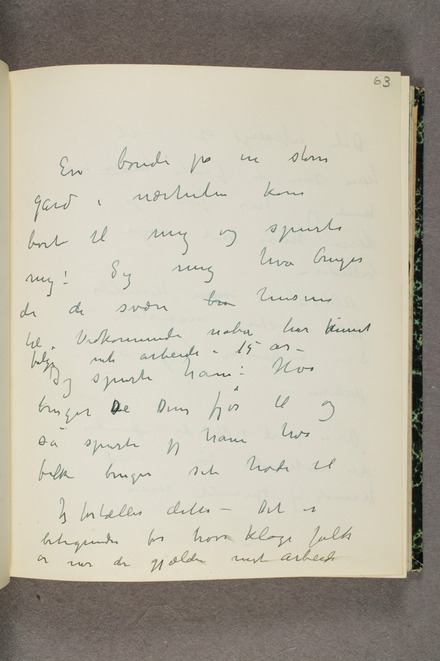 63
En bonde på en stor
gård i nærheten kom
bort til mig og spurte
mig: Sig mig hva bruges
de de svære husene
til. Vedkommende nabo har kunnet
følge mit arbeide i 15 år –
Jeg spurte ham: Hva
bruger De Deres fjøs til og
så spurte jeg ham hva
folk bruger sit hode til
Jeg fortæller dette – Det er
betegnende for hvor kloge folk
er når de gjælder mit arbeide